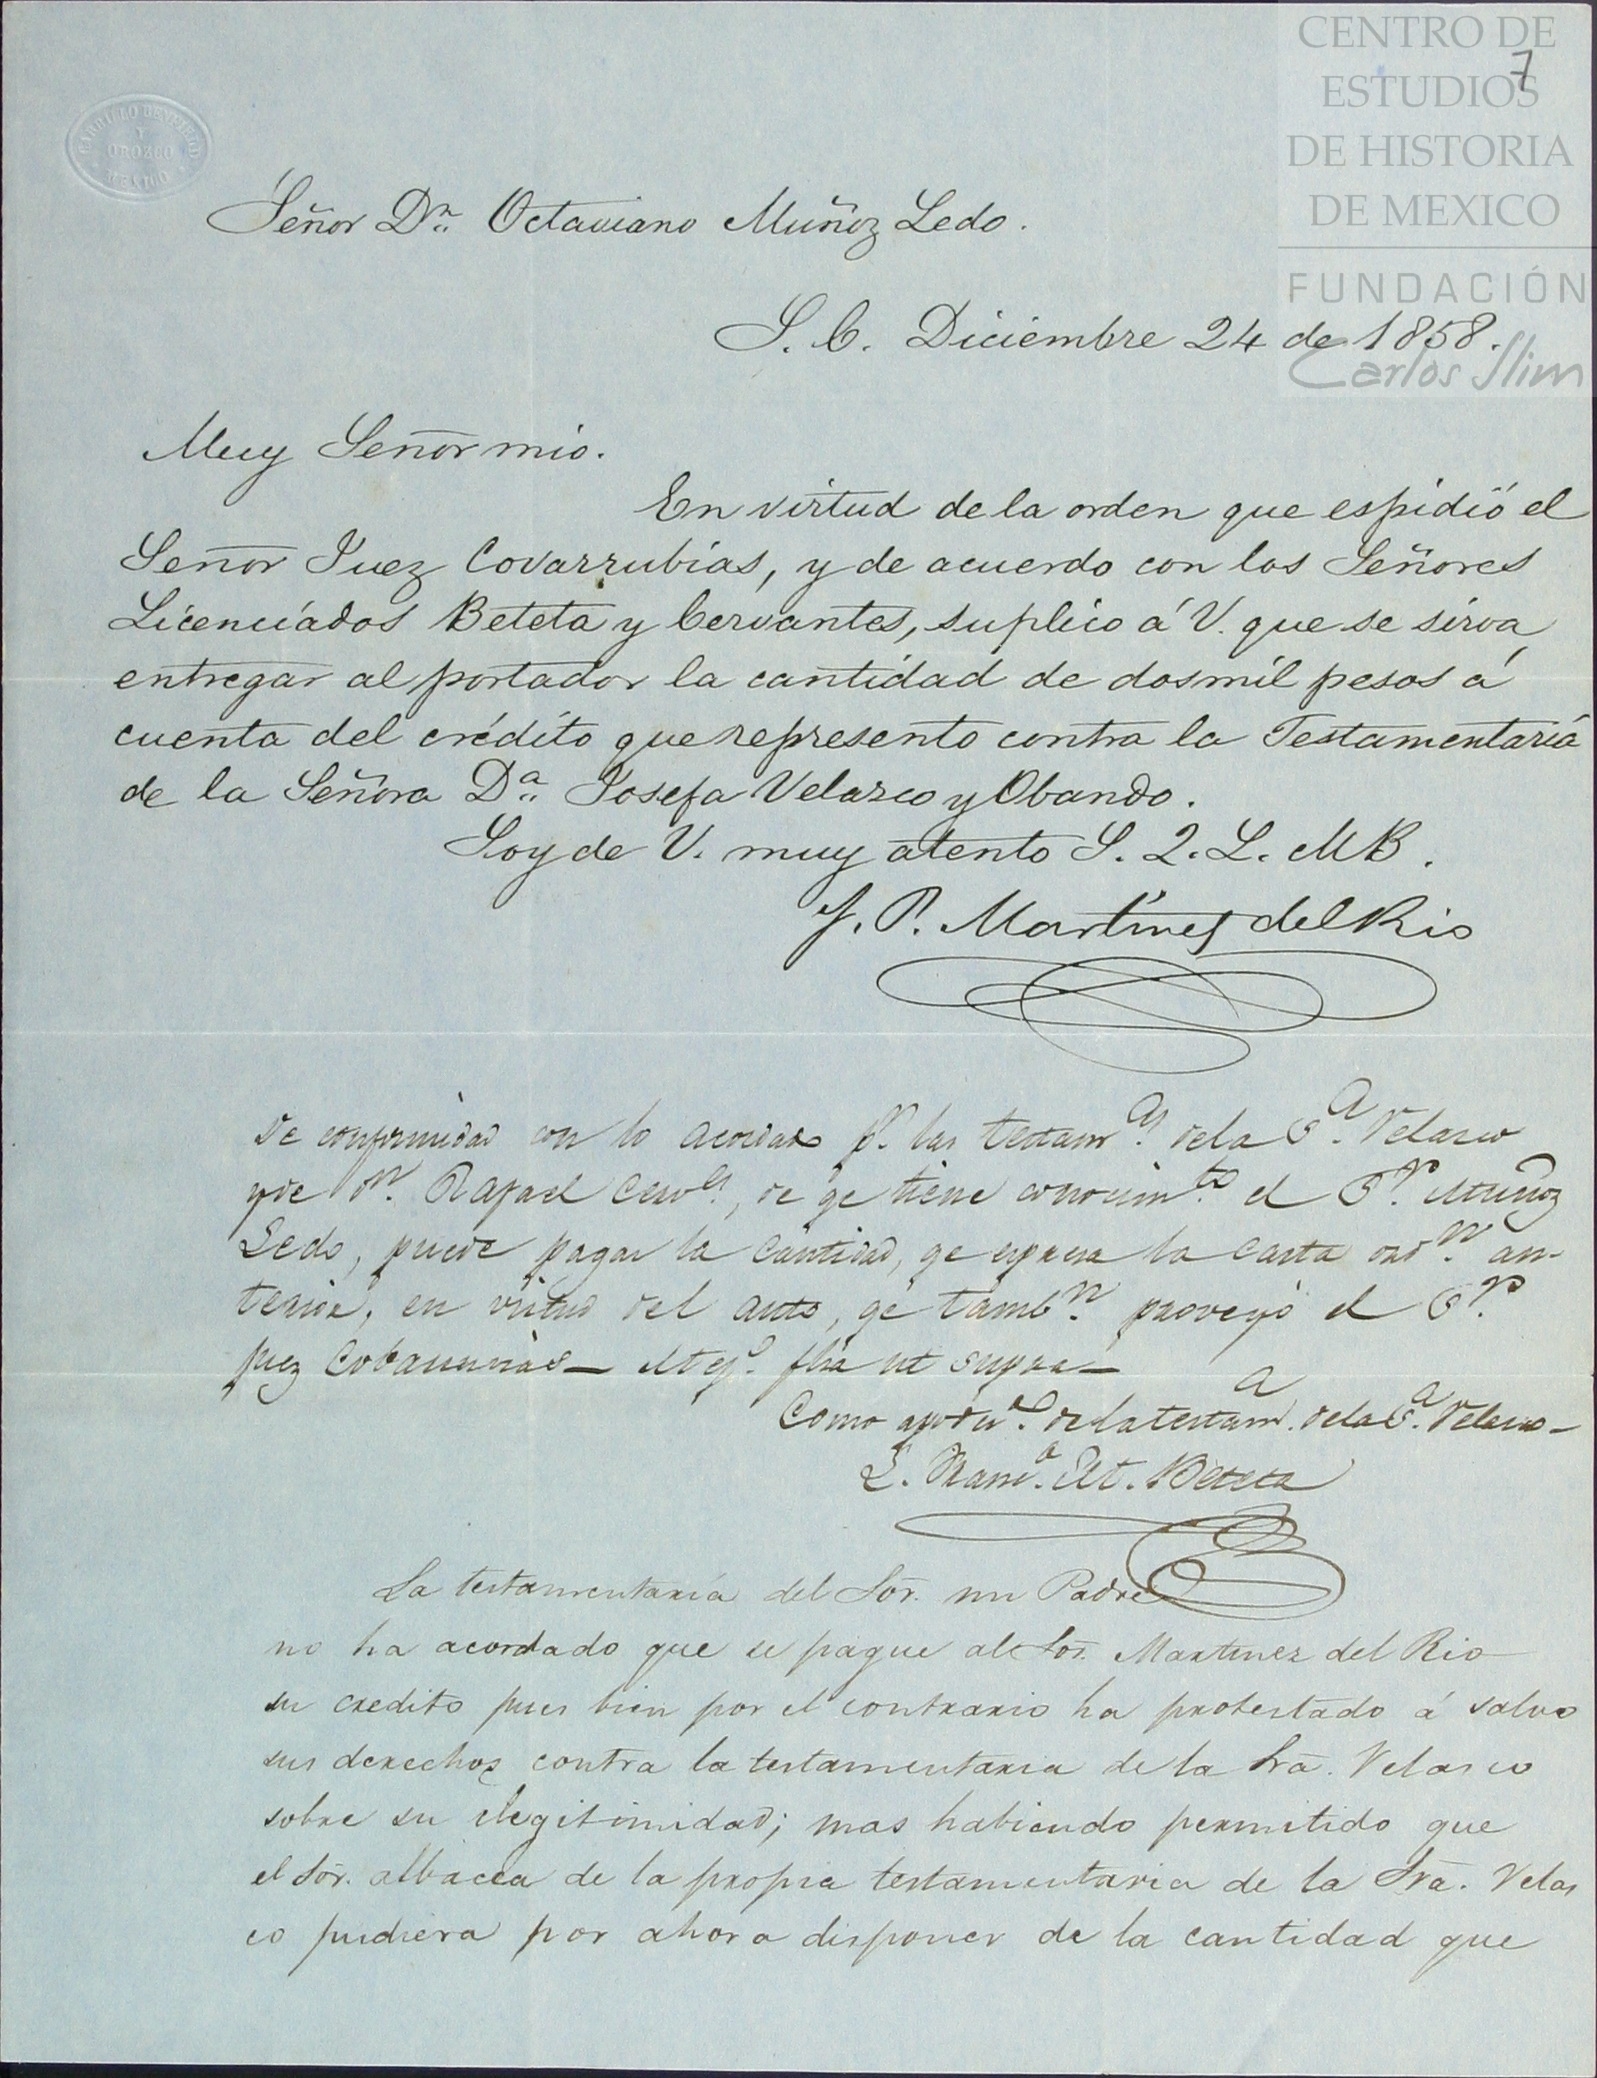 CENTRO DE
ESTUDIOS
DE HISTORIA
DE MEXICO
FUNDACIÓN
Carlos Slim
7
OROZCO
MEXICO
Señor Dn. Octaviano Muñoz Ledo.
S. C. Diciembre 24 de 1858.
Muy Señor mio.
En virtud de la orden que espidió el
Señor Juez Covarrubias, y de acuerdo con los Señores
Licenciados Beteta y Cervantes, suplico á V. que se sirva
entregar al portador la cantidad de dosmil pesos á
cuenta del crédito que represento contra la Testamentaría
de la Señora Da. Josefa Velasco y Obando.
Soy de V. muy atento S. Q. L. M B.
J. P. Martinez del Rio
De conformidad con lo acordado pr. las testams. de la Sa. Velasco
y de Dn. Rafael Cervs., de qe tiene conocimto. el Sr. Muñoz
Ledo, puede pagar la cantidad, qe espresa la carta ordn. an-
terior, en virtud del auto, qe tambn. proveyó el Sr.
juez Cobarrubias— Mejo. fha ut supra—
Como apodo. de la testama. de la Sa. Velasco—
L. Mano. M. Beteta
La testamentaría del Sor. mi Padre
no ha acordado que se pague al Sor. Martinez del Rio
su credito pues bien por el contrario ha protestado á salvo
sus derechos contra la testamentaria de la Sra. Velasco
sobre su ilegitimidad; mas habiendo permitido que
el Sor. albacea de la propia testamentaria de la Sra. Velas
co pudiera por ahora disponer de la cantidad que